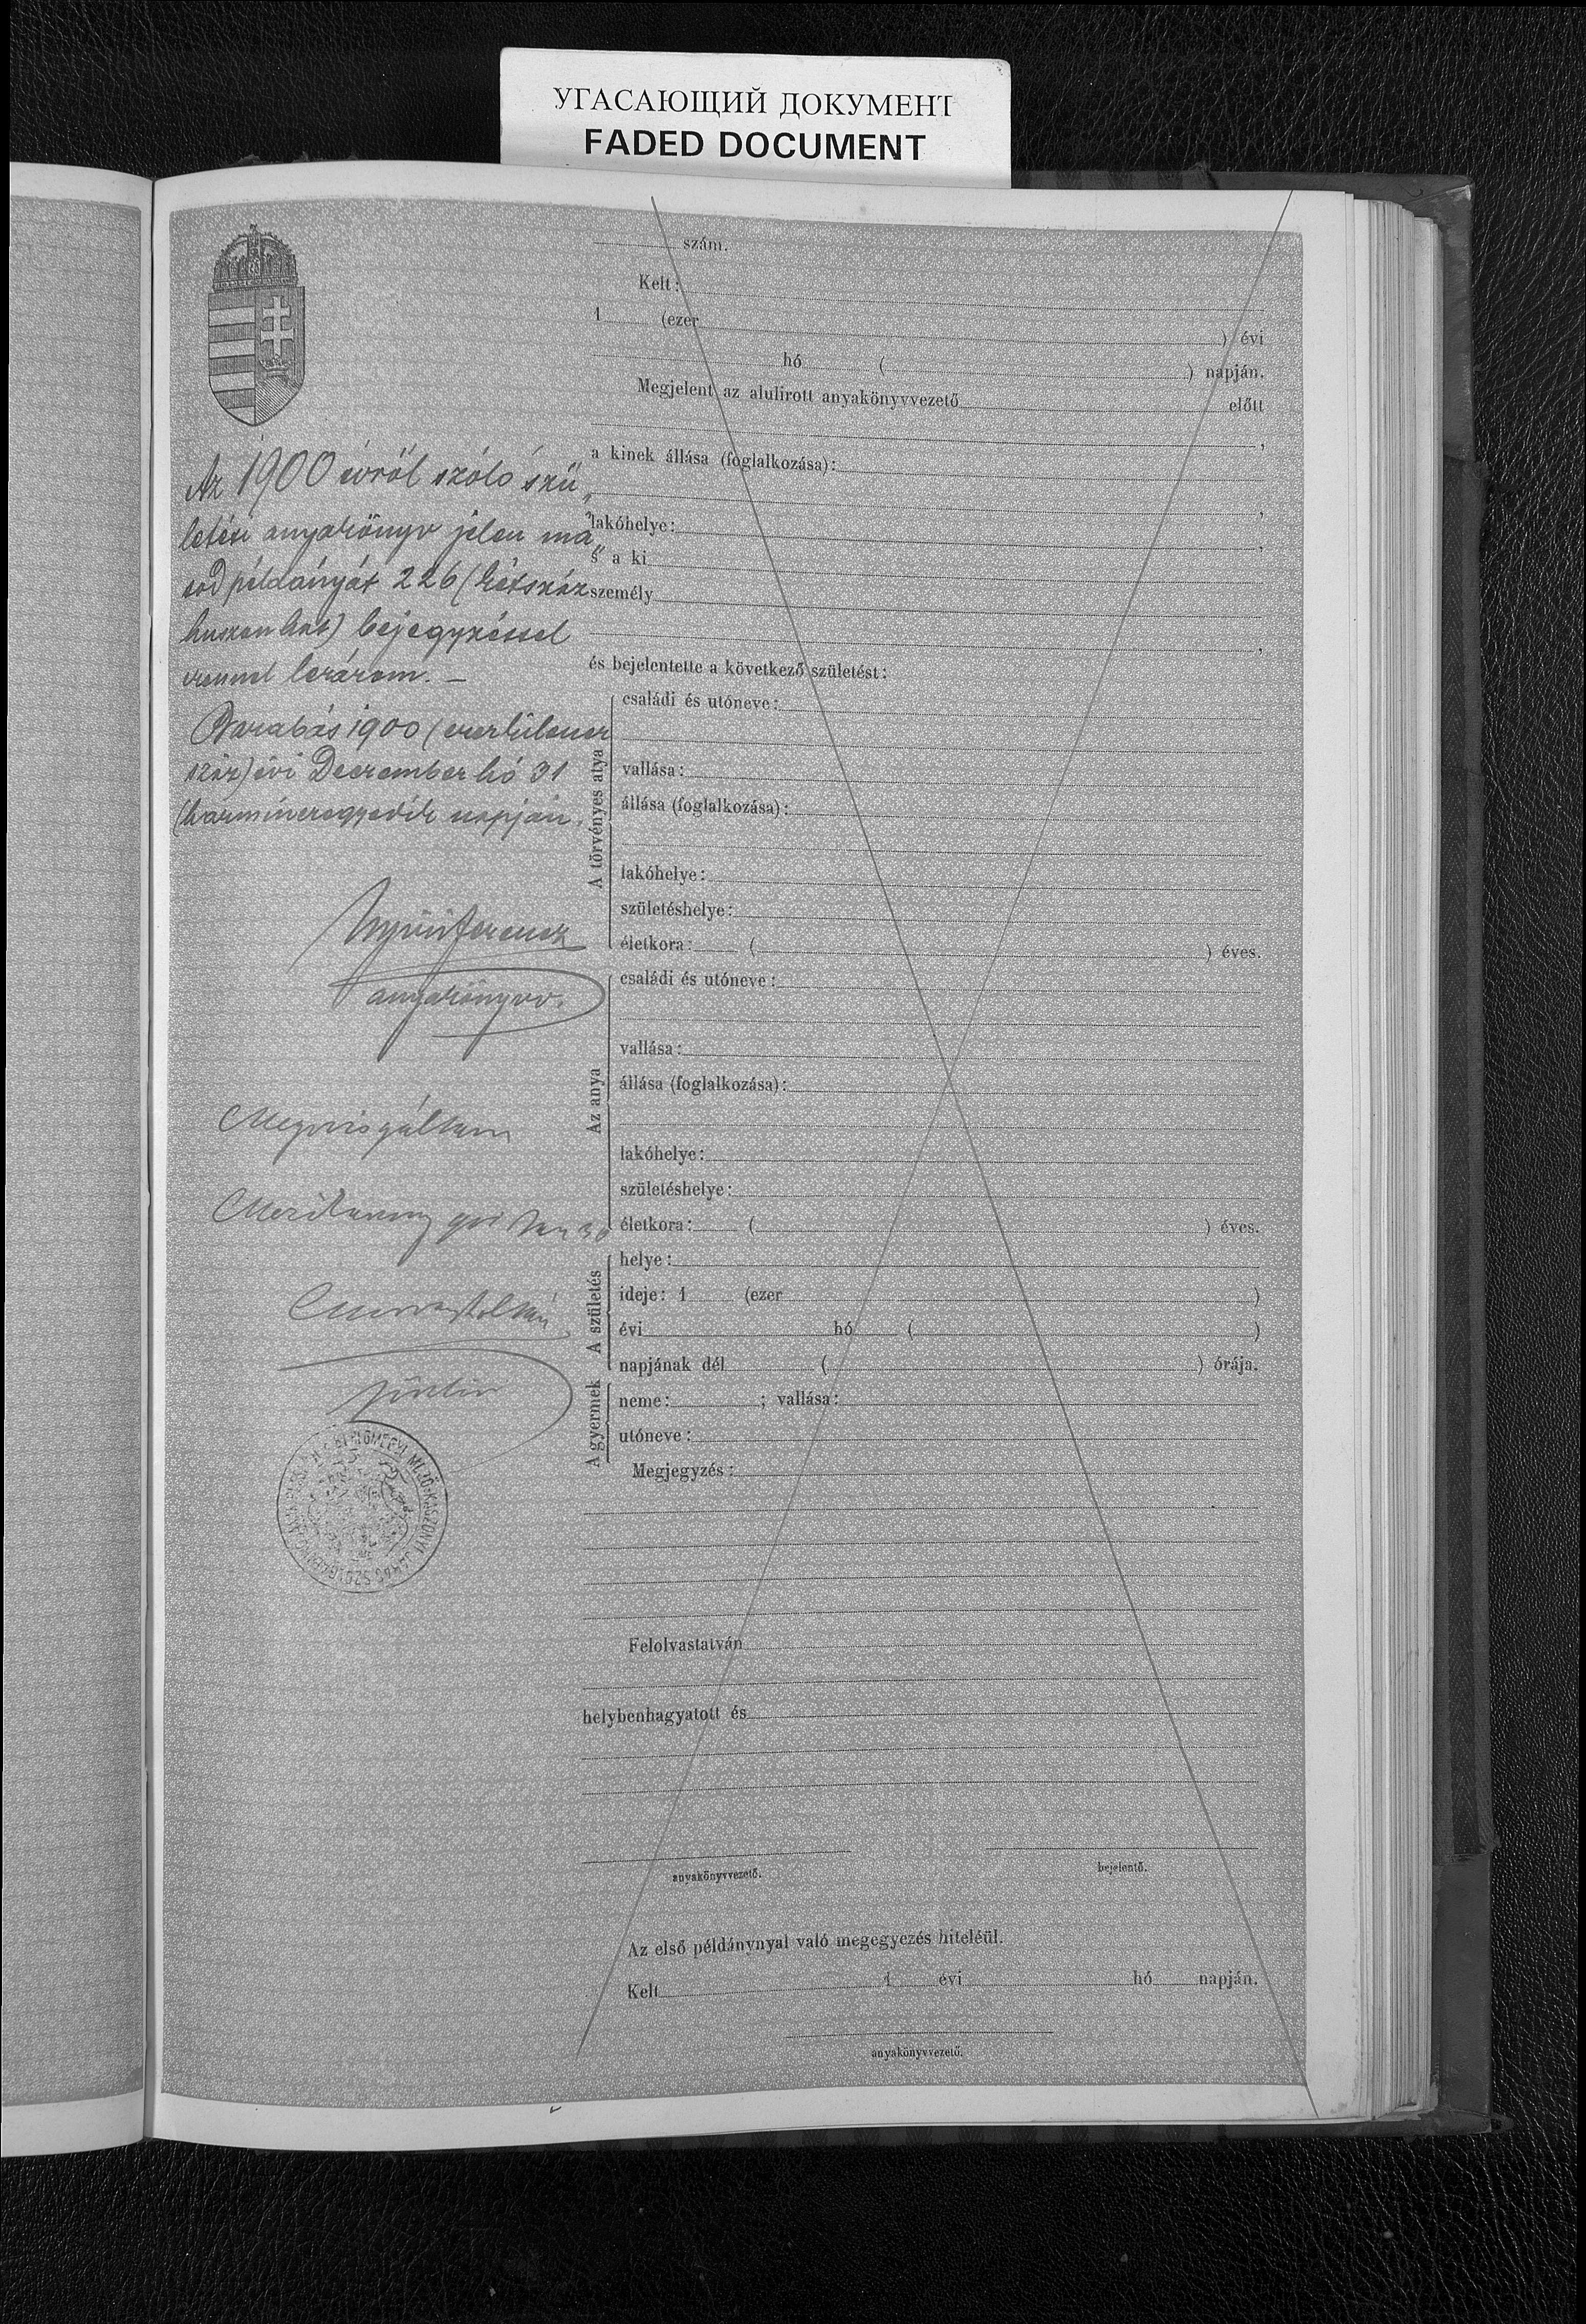 УГАСАЮЩИЙ ДОКУМЕНТ
FADED DOCUMENT
szám.
Kelt:
1 (ezer ) évi
hó ( ) napján.
Megjelent az alulirott anyakönyvvezető előtt
,
a kinek állása (foglalkozása):
,
lakóhelye: ,
s a ki
személy
,
és bejelentette a következő születést:
A törvényes atya
családi és utóneve:
vallása:
állása (foglalkozása):
lakóhelye:
születéshelye:
életkora: ( ) éves.
Az anya
családi és utóneve:
vallása:
állása (foglalkozása):
lakóhelye:
születéshelye:
életkora: ( ) éves.
A születés
helye:
ideje: 1 (ezer )
évi hó ( )
napjának dél ( ) órája.
A gyermek
neme: ; vallása:
utóneve:
Megjegyzés:
Felolvastatván
helybenhagyatott és
anyakönyvvezető.
bejelentő.
Az első példánynyal való megegyezés hiteléül.
Kelt 1 évi hó napján.
anyakönyvvezető.
Az 1900 évről szóló szü„
letési anyakönyv jelen má„
sod példányát 226 (kétszáz
huszonhat) bejegyzéssel
ezennel lezárom. –
Barabás 1900 (ezerkilencz
száz) évi Deczember hó 31
(harminczegyedik napján.
Ferencz
anyakönyvv.
Megvizsgáltam